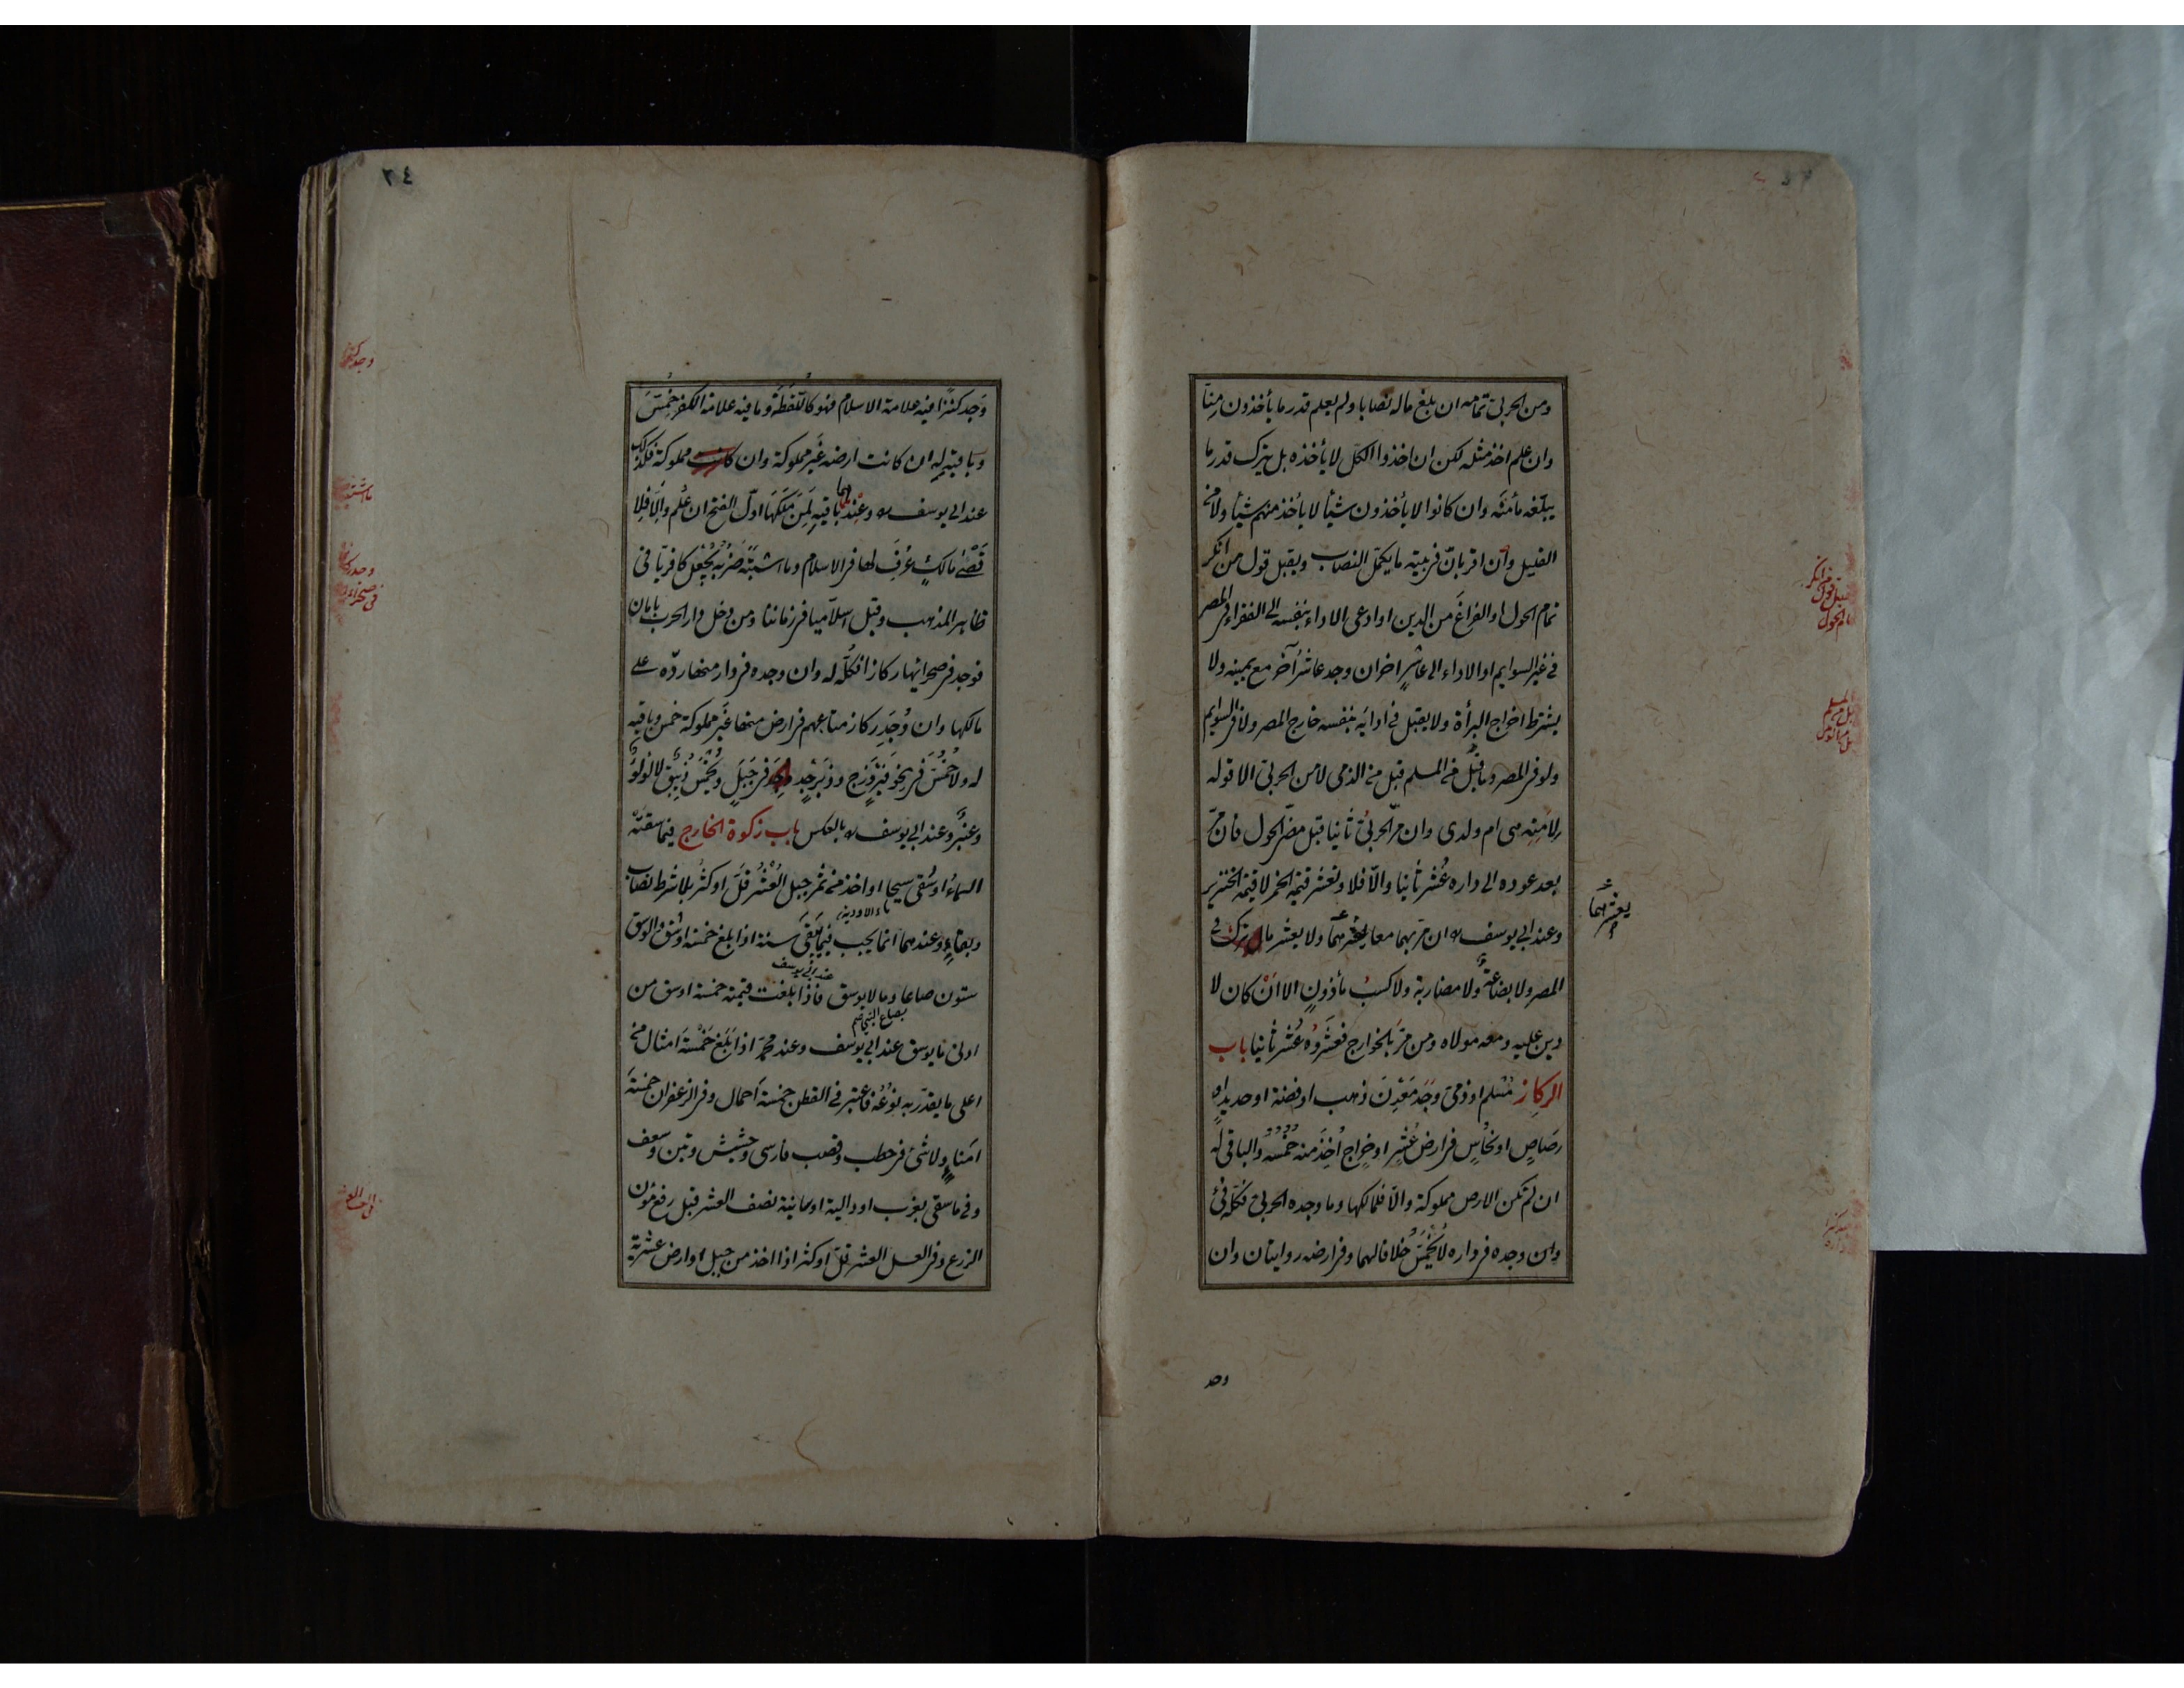 ومن الحربي تمامه ان بلغ ماله نصابا ولم يعلم قدر ما يأخذون منا
وان علم اخذ مثله لكن ان اخذوا الكل لا يأخذه بل يترك قدر ما
يبلّغه مأمنه وان كانوا لا يأخذون شيأ لا يأخذ منهم شيأ ولا من
القليل وان اقر بانّ فى بيته ما يكمل النصاب ويقبل قول من انكر
تمام الحول او الفراغ من الدين او ادعى الاداء بنفسه الى الفقراء فى المصر
فى غير السوايم او الاداء الى عاشر اخر ان وجد عاشر آخر مع يمينه ولا
يشترط اخراج البرأة ولا يقبل فى ادائه بنفسه خارج المصر ولا فى السوايم
ولو فى المصر وما قُبل من المسلم قبل من الذمى لا من الحربي الا قوله
لامته هى ام ولدى وان مرّ الحربيّ ثانيا قبل مضى الحول فان مرّ
بعد عوده الى داره عُشر ثانيا والّا فلا وتعشر قيمة الخمر لا قيمة الخنزير
يعشرهما
وعند ابي يوسف ان مر بهما معا يعشرهما ولا يعشر مال ترك فى
المصر ولا بضاعة ولا مضاربة ولا كسبُ مأذونٍ الا انْ كان لا
دين عليه ومعه مولاه ومن مرّ بالخوارج فعشروه عُشر ثانيا باب
الركاز مسلم او ذمىّ وجَد مَعْدِنَ ذهب او فضة او حديد او
رصاصٍ او نحاسٍ فى ارض عُشرٍ او خراجٍ اُخِذَ منه خُمْسُه والباقى له
ان لم تكن الارض مملوكة والّا فلمالكها وما وجده الحربي فكلّه فئ
وان وجده فى داره لا يُخمّسُ خلافا لهما وفى ارضه روايتان وان
وجد
٣٤
وَجد كنزا فيه علامة الاسلام فهو كاللقطة وما فيه علامة الكفر خُمّسَ
وباقيه له ان كانت ارضه غير مملوكة وان كانت مملوكة فكذلك
عند ابي يوسف وعندهما باقيه لِمَن مَلَكَها اوّل الفتح ان عُلم والّا فلا
قصى مالكٍ عُرِفَ لها فى الاسلام وما اشتبه ضربُه يُجْعَلُ كافريّا فى
ظاهر المذهب وقيل اسلاميا فى زماننا ومن دخل دار الحرب بامان
فوجد فى صحرائها ركازا فكلّه له وان وجده فى دار منها ردّه على
مالكها وان وُجِد ركاز متاعهم فى ارض منها غير مملوكة خمس وباقيه
له ولا خُمسَ فى نحو فيروزج وزبرجد وجد فى جبل ويُخمّسُ زيبق لا لؤلؤ
وعنبر وعند ابي يوسف بالعكس باب زكوة الخارج فيما سقته
السماءُ او سُقى سيحا او اخذ من ثمر جبل العُشْر قلّ او كثر بلا شرط نصاب
ماء الاودية
وبقاءٍ وعندهما انما يجب فيما يَبْقَى سنة اذا بلغ خمسة اوسُق والوسق
عند ابي يوسف
ستون صاعا وما لا يوسق فاذا بلغت قيمته خمسة اوسق من
بصاع النبى
ادنى ما يوسق عند ابي يوسف وعند محمّد اذا بلغ خمْسَة امثال من
اعلى ما يقدّر به نوعُه فاعتبر فى القطن خمسة احمال وفى الزعفران خمسةَ
امناءٍ ولا شئ فى حطب وقصب فارسى وحشيش وتبن وسعف
وفى ما سقى بغرب او دالية او سانية نصف العشر قبل رفع مُؤن
الزرع وفى العسل العشر قلّ او كثر اذا اخذ من جبل او ارض عشرية